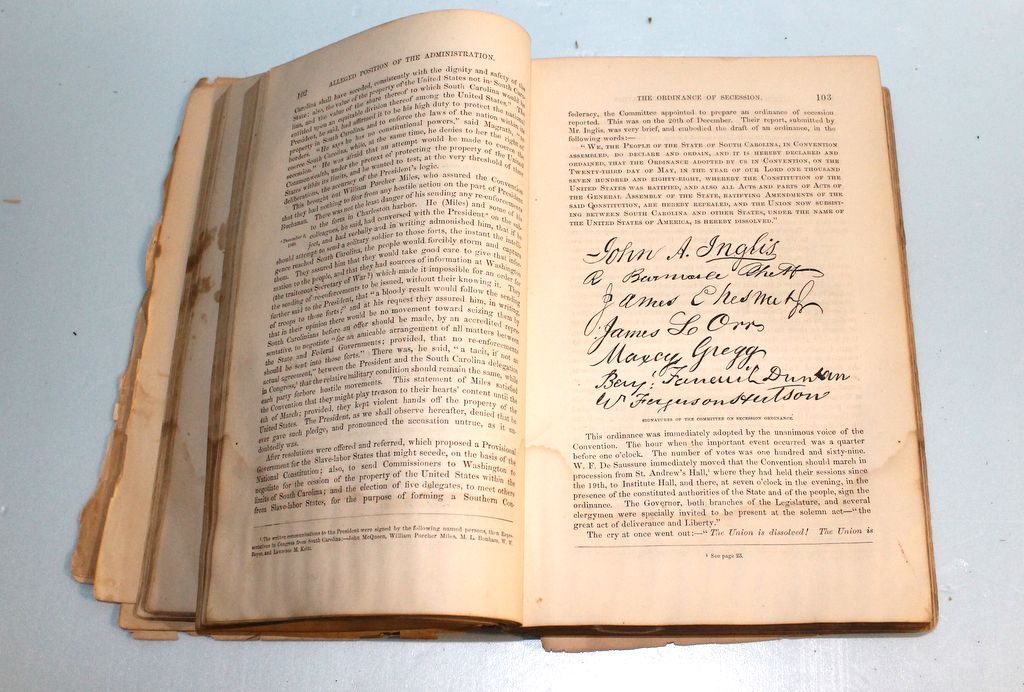 102
ALLEGED POSITION OF THE ADMINISTRATION.
Carolina shall have seceded, consistently with the dignity and safety of the
State; also, the value of the property of the United States not in South Caro-
lina, and the value of the share thereof to which South Carolina would be
entitled upon an equitable division thereof among the United States." The
President, he said, had affirmed it to be his high duty to protect the
property in South Carolina, and to enforce the laws of the nation within its
borders. "He says he has no constitutional powers," said Magrath, "to
coerce South Carolina, while, at the same time, he denies to her the right of
secession." He was afraid that an attempt would be made to coerce the
Commonwealth, under the pretext of protecting the property of the United
States within its limits, and he wanted to test, at the very threshold of these
deliberations, the accuracy of the President's logic.
This brought out William Porcher Miles, who assured the Convention
that they had nothing to fear from any hostile action on the part of President
Buchanan. There was not the least danger of his sending any re-enforcements
to the forts in Charleston harbor. He (Miles) and some of his
colleagues, he said, had conversed with the President on the sub-
ject, and had verbally and in writing admonished him, that if he
should attempt to send a solitary soldier to those forts, the instant the intelli-
gence reached South Carolina, the people would forcibly storm and capture
them. They assured him that they would take good care to give that infor-
mation to the people, and that they had sources of information at Washington
(the traitorous Secretary of War?) which made it impossible for an order for
the sending of re-enforcements to be issued, without their knowing it. They
further said to the President, that "a bloody result would follow the sending
of troops to those forts;" and at his request they assured him, in writing,
that in their opinion there would be no movement toward seizing them by
South Carolinians before an offer should be made, by an accredited repre-
sentative, to negotiate "for an amicable arrangement of all matters between
the State and Federal Governments; provided, that no re-enforcements
should be sent into those forts." There was, he said, "a tacit, if not an
actual agreement," between the President and the South Carolina delegation
in Congress, that the relative military condition should remain the same, while
each party forbore hostile movements. This statement of Miles satisfied
the Convention that they might play treason to their hearts' content until the
4th of March; provided, they kept violent hands off the property of the
United States. The President, as we shall observe hereafter, denied that he
ever gave such pledge, and pronounced the accusation untrue, as it un-
doubtedly was.
After resolutions were offered and referred, which proposed a Provisional
Government for the Slave-labor States that might secede, on the basis of the
National Constitution; also, to send Commissioners to Washington to
negotiate for the cession of the property of the United States within the
limits of South Carolina; and the election of five delegates, to meet others
from Slave-labor States, for the purpose of forming a Southern Con-
¹ The written communications to the President were signed by the following named persons, then Repre-
sentatives in Congress from South Carolina:—John McQueen, William Porcher Miles, M. L. Bonham, W. W.
Boyce and Lawrence M. Keitt.
THE ORDINANCE OF SECESSION. 103
federacy, the Committee appointed to prepare an ordinance of secession
reported. This was on the 20th of December. Their report, submitted by
Mr. Inglis, was very brief, and embodied the draft of an ordinance, in the
following words:—
"WE, THE PEOPLE OF THE STATE OF SOUTH CAROLINA, IN CONVENTION
ASSEMBLED, DO DECLARE AND ORDAIN, AND IT IS HEREBY DECLARED AND
ORDAINED, THAT THE ORDINANCE ADOPTED BY US IN CONVENTION, ON THE
TWENTY-THIRD DAY OF MAY, IN THE YEAR OF OUR LORD ONE THOUSAND
SEVEN HUNDRED AND EIGHTY-EIGHT, WHEREBY THE CONSTITUTION OF THE
UNITED STATES WAS RATIFIED, AND ALSO ALL ACTS AND PARTS OF ACTS OF
THE GENERAL ASSEMBLY OF THE STATE, RATIFYING AMENDMENTS OF THE
SAID CONSTITUTION, ARE HEREBY REPEALED, AND THE UNION NOW SUBSIST-
ING BETWEEN SOUTH CAROLINA AND OTHER STATES, UNDER THE NAME OF
THE UNITED STATES OF AMERICA, IS HEREBY DISSOLVED."
John A. Inglis
R Barnwell Rhett
James Chesnut Jr
James L Orr
Maxcy Gregg
Benj. Faneuil Dunkin
W Ferguson Hutson
SIGNATURES OF THE COMMITTEE ON SECESSION ORDINANCE.
This ordinance was immediately adopted by the unanimous voice of the
Convention. The hour when the important event occurred was a quarter
before one o'clock. The number of votes was one hundred and sixty-nine.
W. F. De Saussure immediately moved that the Convention should march in
procession from St. Andrew's Hall,¹ where they had held their sessions since
the 19th, to Institute Hall, and there, at seven o'clock in the evening, in the
presence of the constituted authorities of the State and of the people, sign the
ordinance. The Governor, both branches of the Legislature, and several
clergymen were specially invited to be present at the solemn act—"the
great act of deliverance and Liberty."
The cry at once went out:—"The Union is dissolved! The Union is
¹ See page 23.